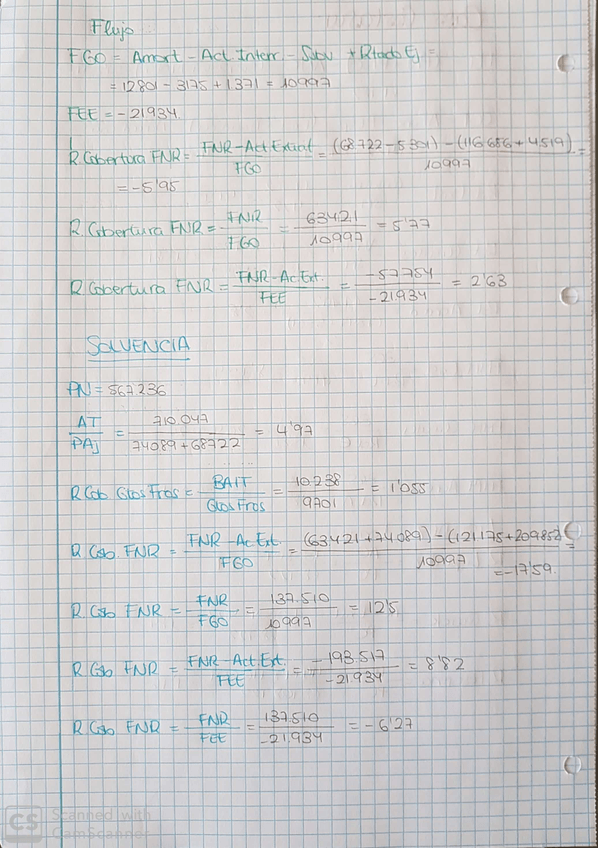 Flujo
FGO = Amort - Act Interr. - Subv + Rtado Ej =
= 12801 - 3175 + 1371 = 10997
FEE = -21934.
R. Cobertura FNR = FNR - Act Extrat / FGO = (68722 - 5301) - (116656 + 4519) / 10997 =
= -5'95
R. Cobertura FNR = FNR / FGO = 63421 / 10997 = 5'77
R Cobertura FNR = FNR - Ac. Ext. / FEE = -57754 / -21934 = 2'63
SOLVENCIA
PN = 567236
AT / PAj = 710.047 / 74089 + 68722 = 4'97
R Cob Gtos Fros = BAIT / Gtos Fros = 10238 / 9701 = 1'055
R Cob FNR = FNR - Ac Ext. / FGO = (63421 + 74.089) - (121.175 + 209852) / 10997 =
= -17'59.
R Cob FNR = FNR / FGO = 137.510 / 10997 = 12'5
R Cob FNR = FNR - Act Ext. / FEE = -193.517 / -21.934 = 8'82
R Cob FNR = FNR / FEE = 137.510 / -21.934 = -6'27
CS Scanned with
CamScanner